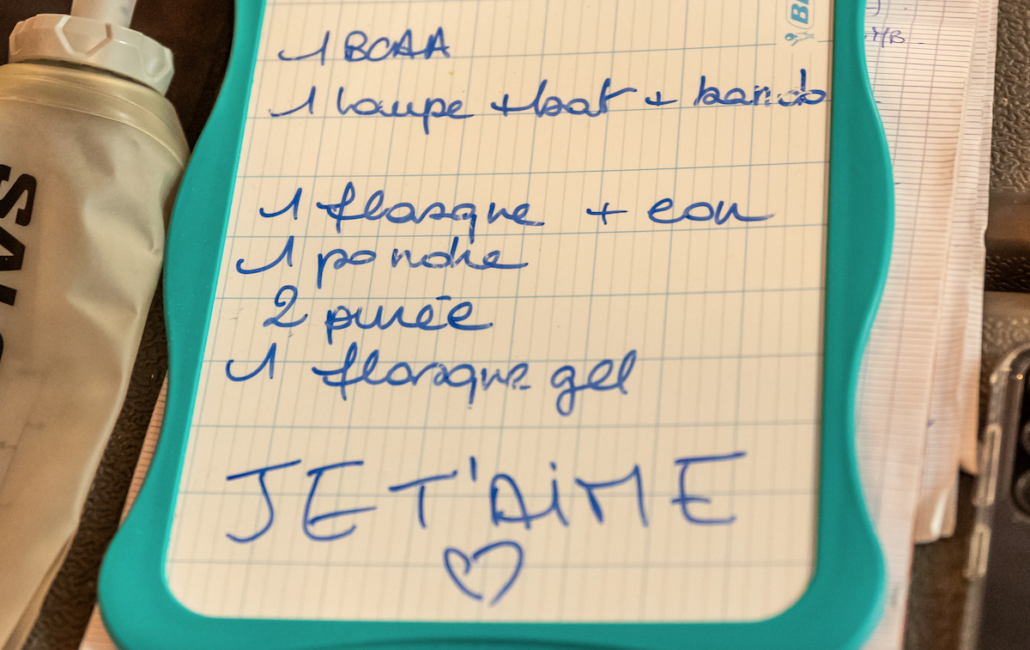 1 BCAA
1 loupe + bat + bando
1 flasque + eau
1 poudre
2 purée
1 flasque gel
JE T'AiME